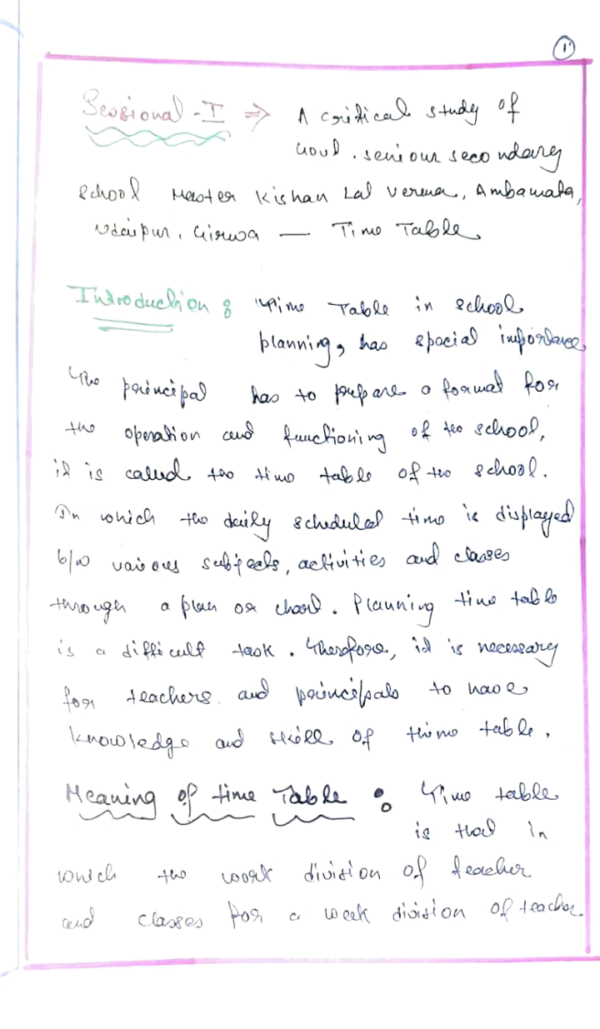 1
Sessional - I ⇒ A critical study of
Govt. seniour secondary
School Master Kishan Lal Verma, Ambamata,
Udaipur, Girwa — Time Table
Introduction : Time Table in school
planning, has special importance
The principal has to prepare a format for
the operation and functioning of the school,
it is called the time table of the school.
In which the daily scheduled time is displayed
b/w various subjects, activities and classes
through a plan or chart. Planning time table
is a difficult task. Therefore, it is necessary
for teachers and principals to have
knowledge and skill of thime table.
Meaning of time Table : Time table
is that in
which the work division of teacher
and classes for a week division of teacher